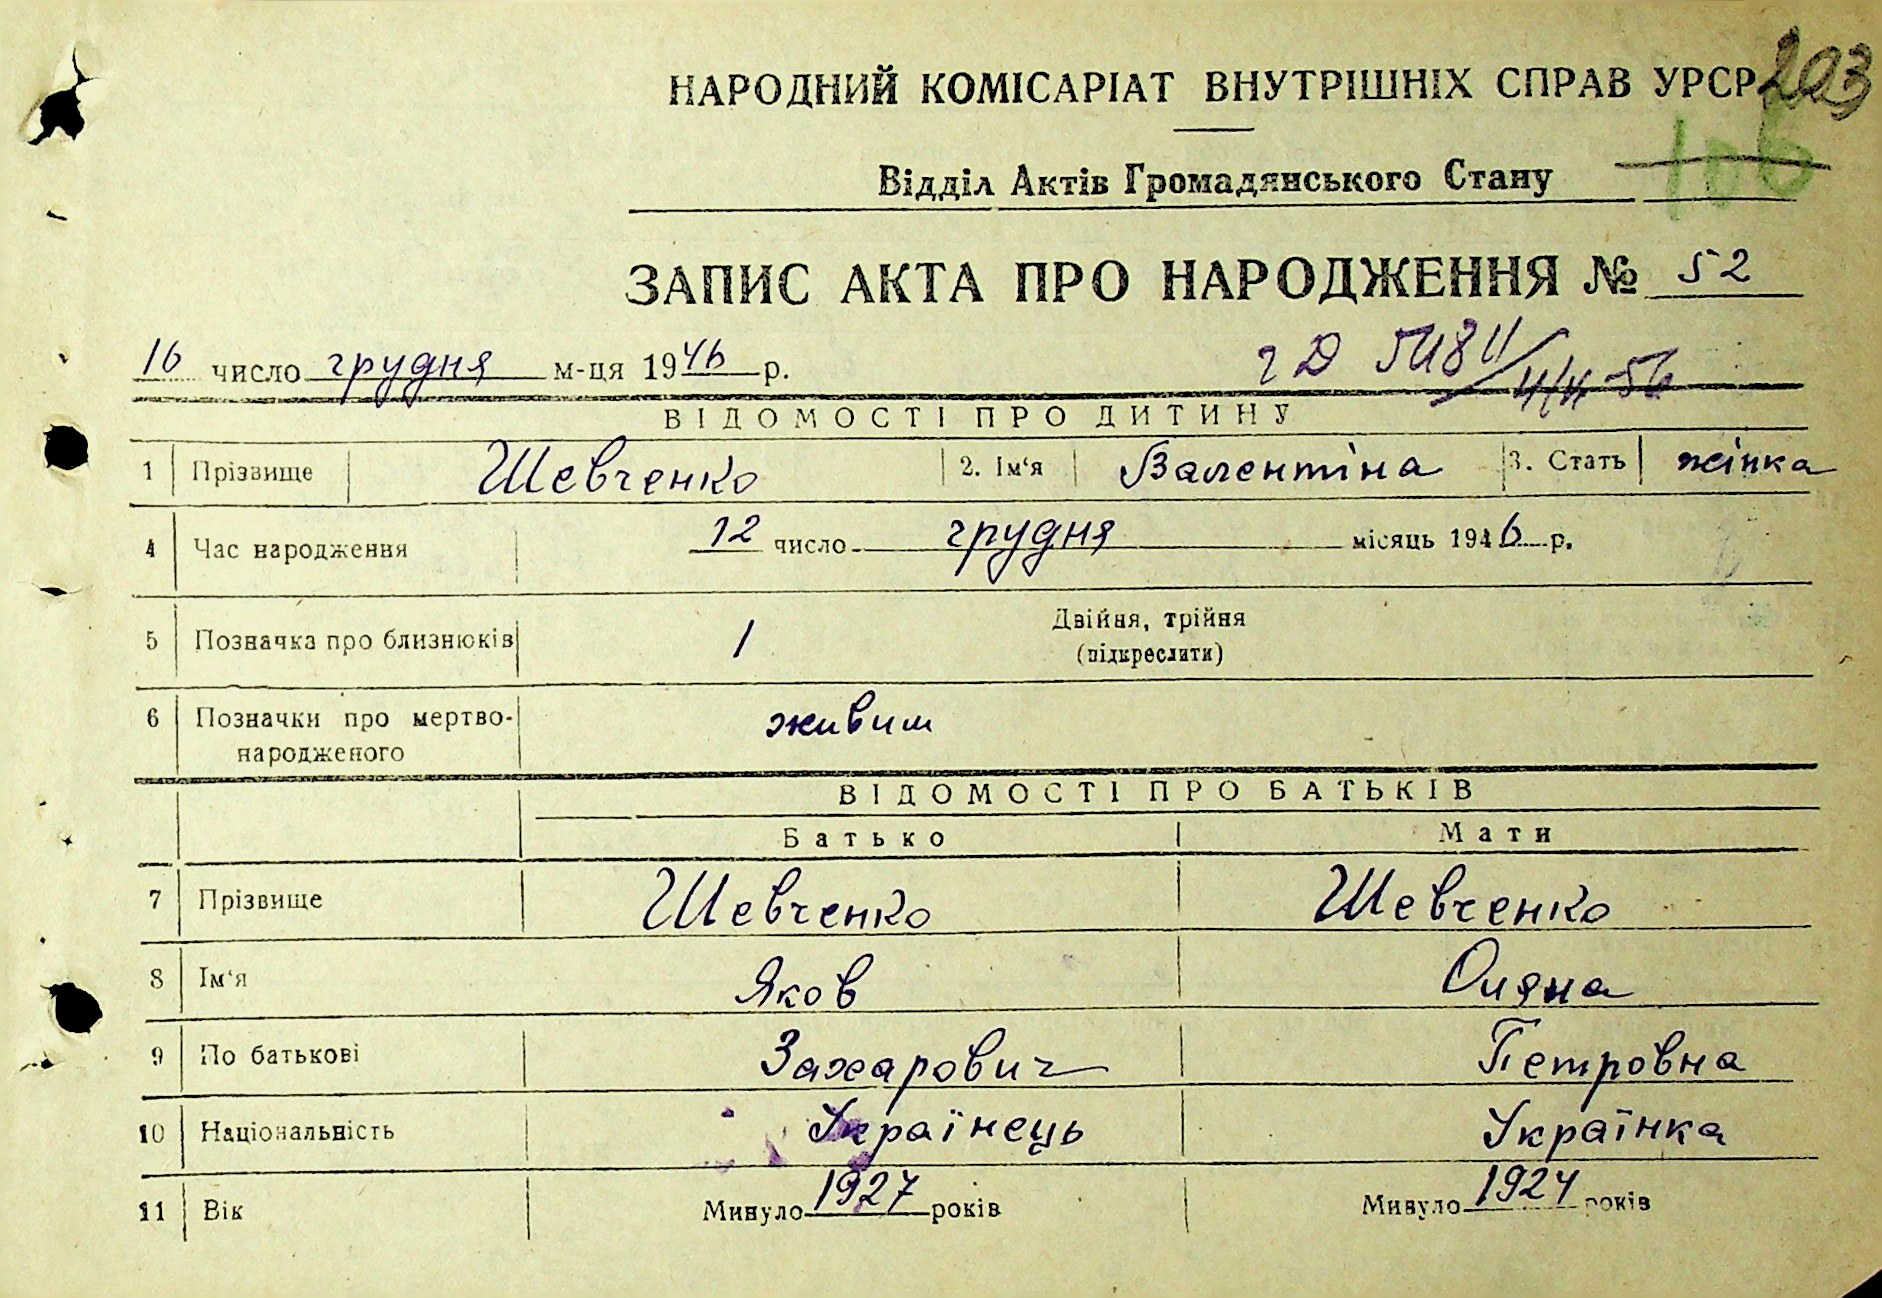 НАРОДНИЙ КОМІСАРІАТ ВНУТРІШНІХ СПРАВ УРСР 203
Відділ Актів Громадянського Стану 106
ЗАПИС АКТА ПРО НАРОДЖЕННЯ № 52
16 число грудня м-ця 1946 р.
ВІДОМОСТІ ПРО ДИТИНУ
1 Прізвище Шевченко 2. Ім‘я Валентіна 3. Стать жінка
4 Час народження 12 число грудня місяць 1946 р.
5 Позначка про близнюків 1 Двійня, трійня
(підкреслити)
6 Позначки про мертво-
народженого живиш
ВІДОМОСТІ ПРО БАТЬКІВ
Батько Мати
7 Прізвище Шевченко Шевченко
8 Ім‘я Яков Оляна
9 По батькові Захарович Петровна
10 Національність Українець Українка
11 Вік Минуло 1927 років Минуло 1924 років